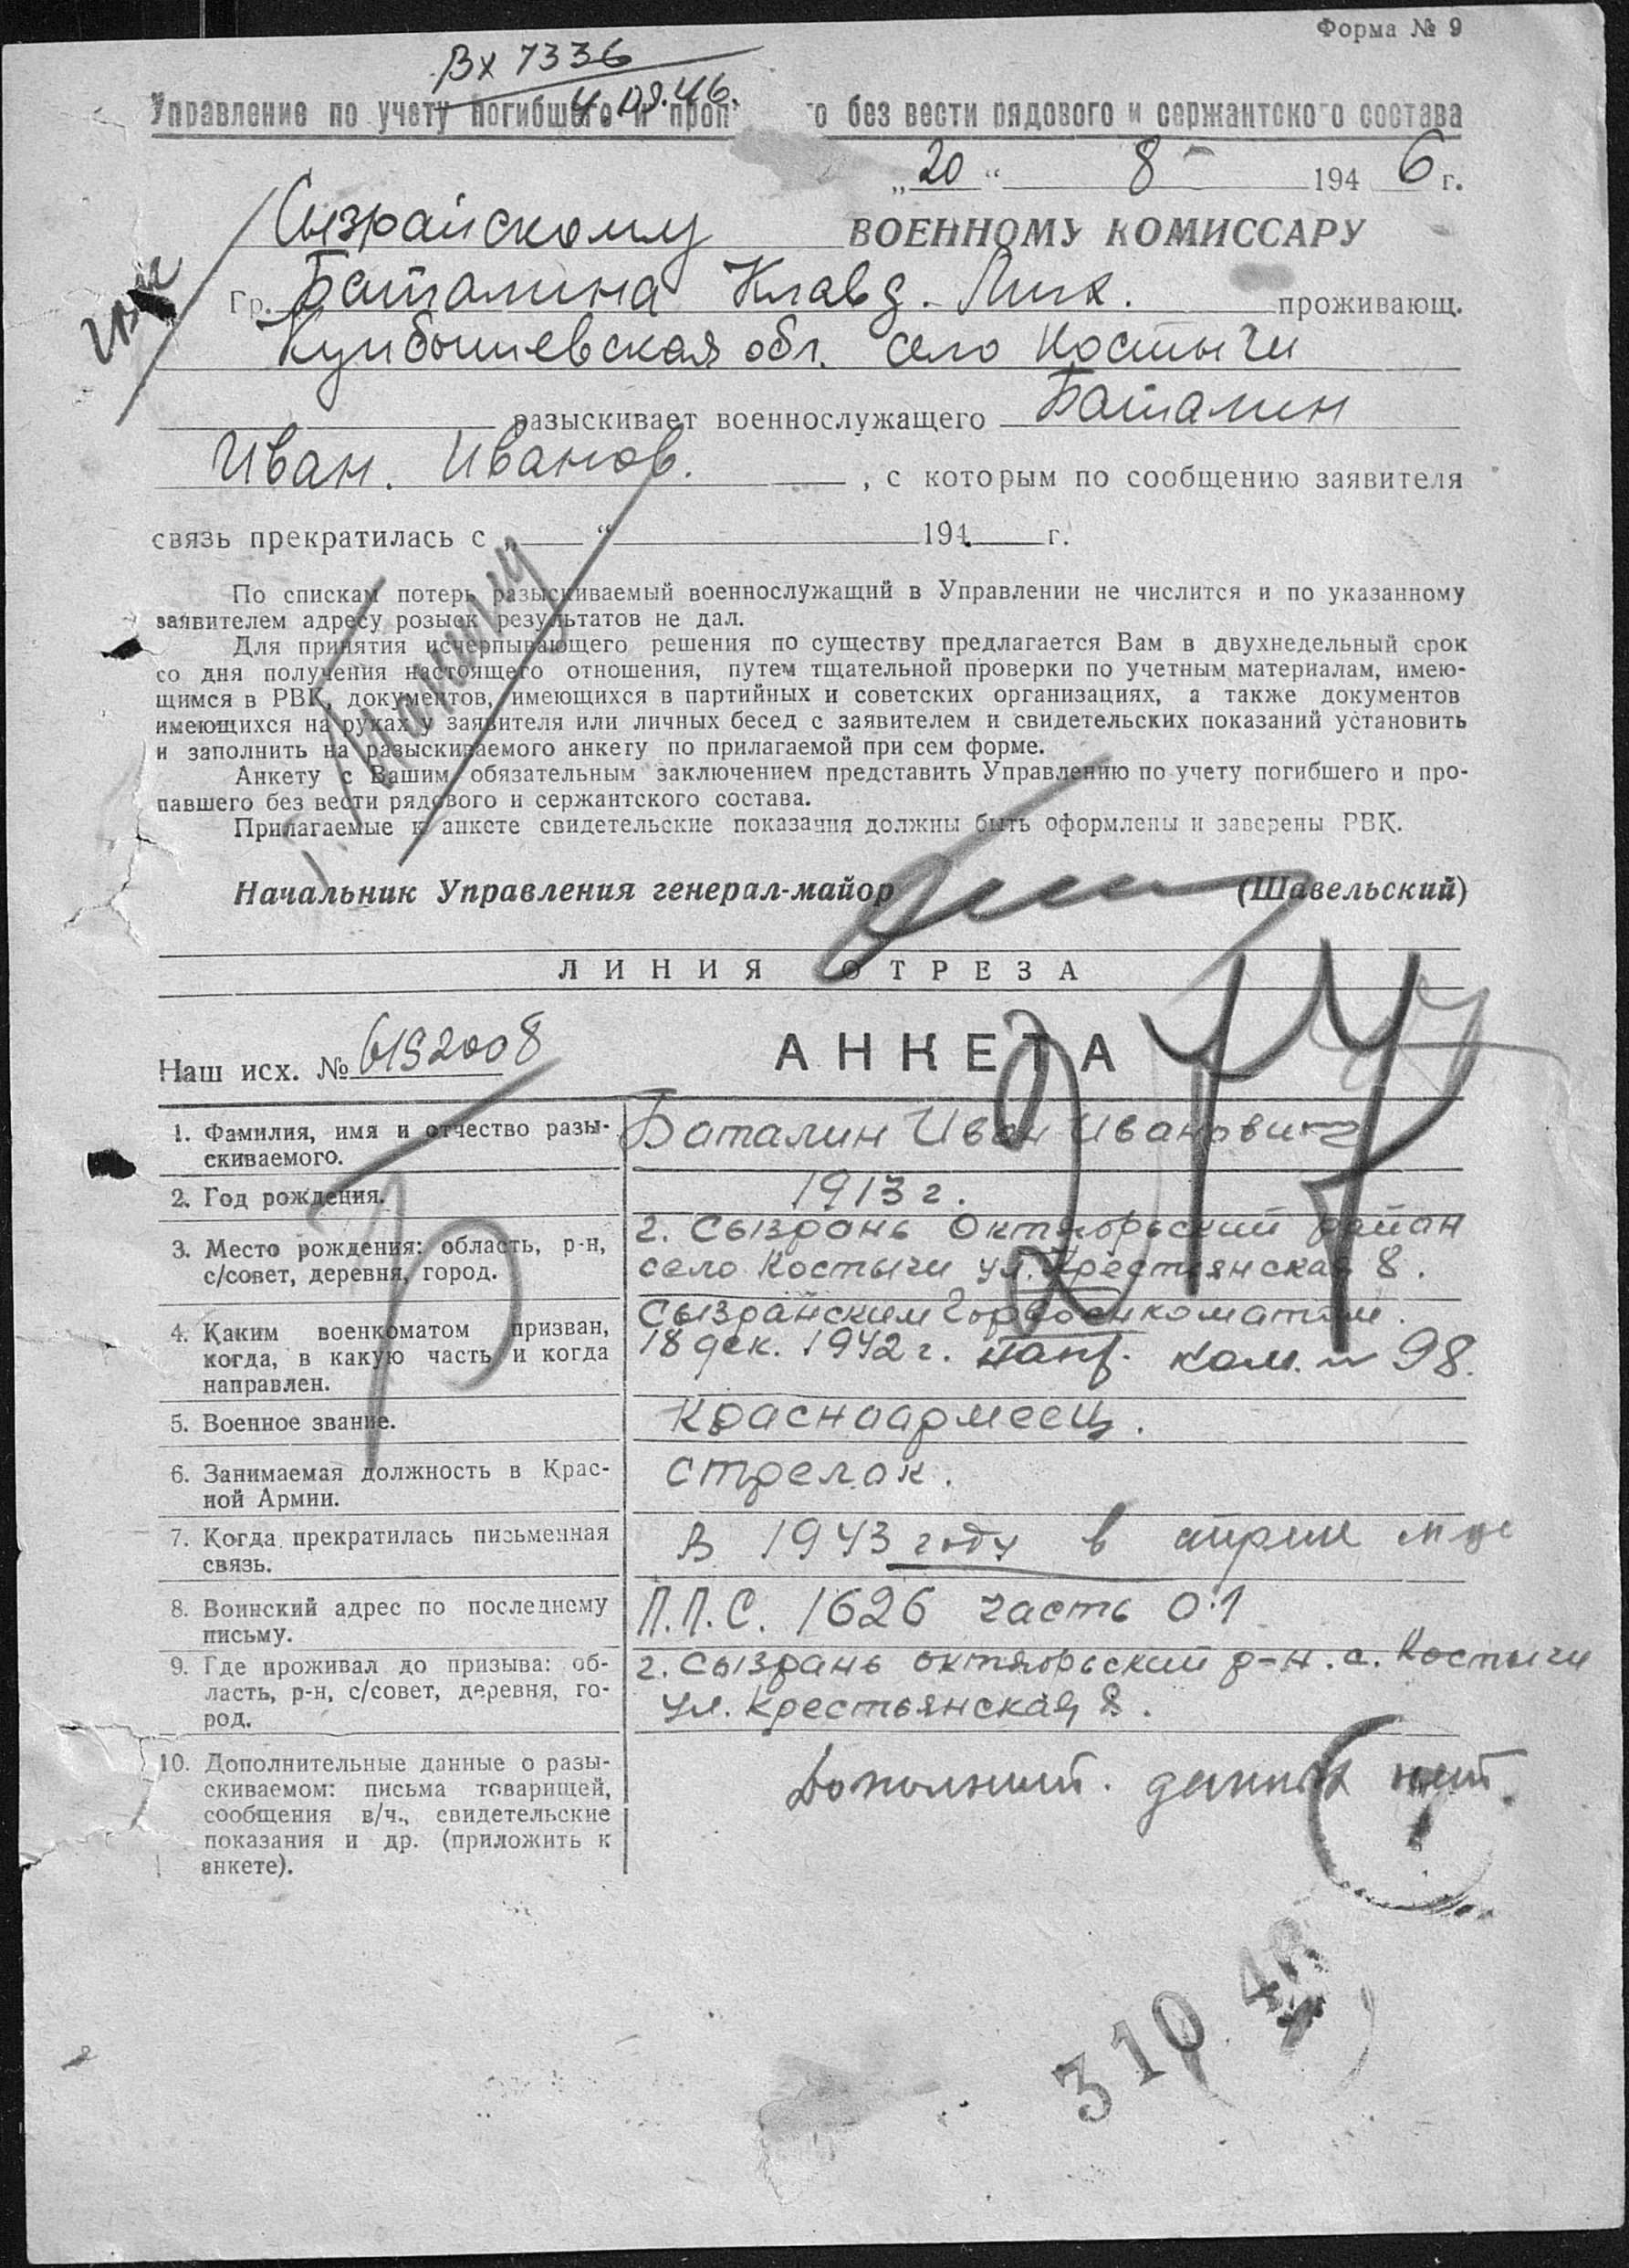 Форма № 9
Вх 7336
4.09.46.
Управление по учету погибшего и проп го без вести рядового и сержантского состава
„20“ 8 1946 г.
Сызрайскому ВОЕННОМУ КОМИССАРУ
Гр. Баталина Клавд. Мих. проживающ.
Куйбышевская обл. село Костычи
разыскивает военнослужащего Баталин
Иван. Иванов. , с которым по сообщению заявителя
связь прекратилась с „ “ 194 г.
По спискам потерь разыскиваемый военнослужащий в Управлении не числится и по указанному
заявителем адресу розыск результатов не дал.
Для принятия исчерпывающего решения по существу предлагается Вам в двухнедельный срок
со дня получения настоящего отношения, путем тщательной проверки по учетным материалам, имею-
щимся в РВК, документов, имеющихся в партийных и советских организациях, а также документов
имеющихся на руках у заявителя или личных бесед с заявителем и свидетельских показаний установить
и заполнить на разыскиваемого анкету по прилагаемой при сем форме.
Анкету с Вашим обязательным заключением представить Управлению по учету погибшего и про-
павшего без вести рядового и сержантского состава.
Прилагаемые к анкете свидетельские показания должны быть оформлены и заверены РВК.
Начальник Управления генерал-майор (Шавельский)
ЛИНИЯ ОТРЕЗА
Наш исх. № 6192008
АНКЕТА
1. Фамилия, имя и отчество разы-
скиваемого.
Баталин Иван Иванович
2. Год рождения.
1913 г.
3. Место рождения: область, р-н,
с/совет, деревня, город.
г. Сызрань Октяборьский район
село Костычи ул. Крестьянская 8.
4. Каким военкоматом призван,
когда, в какую часть и когда
направлен.
Сызрайским Горвоенкоматом.
18 дек. 1942 г. напр. ком. № 98.
5. Военное звание.
Красноармеец.
6. Занимаемая должность в Крас-
ной Армии.
стрелок.
7. Когда прекратилась письменная
связь.
В 1943 году в апреле м-це
8. Воинский адрес по последнему
письму.
П.П.С. 1626 часть 01
9. Где проживал до призыва: об-
ласть, р-н, с/совет, деревня, го-
род.
г. Сызрань октяборьский р-н. с. Костычи
ул. Крестьянская 8.
10. Дополнительные данные о разы-
скиваемом: письма товарищей,
сообщения в/ч., свидетельские
показания и др. (приложить к
анкете).
Дополнит. данных нет.
3 10 46